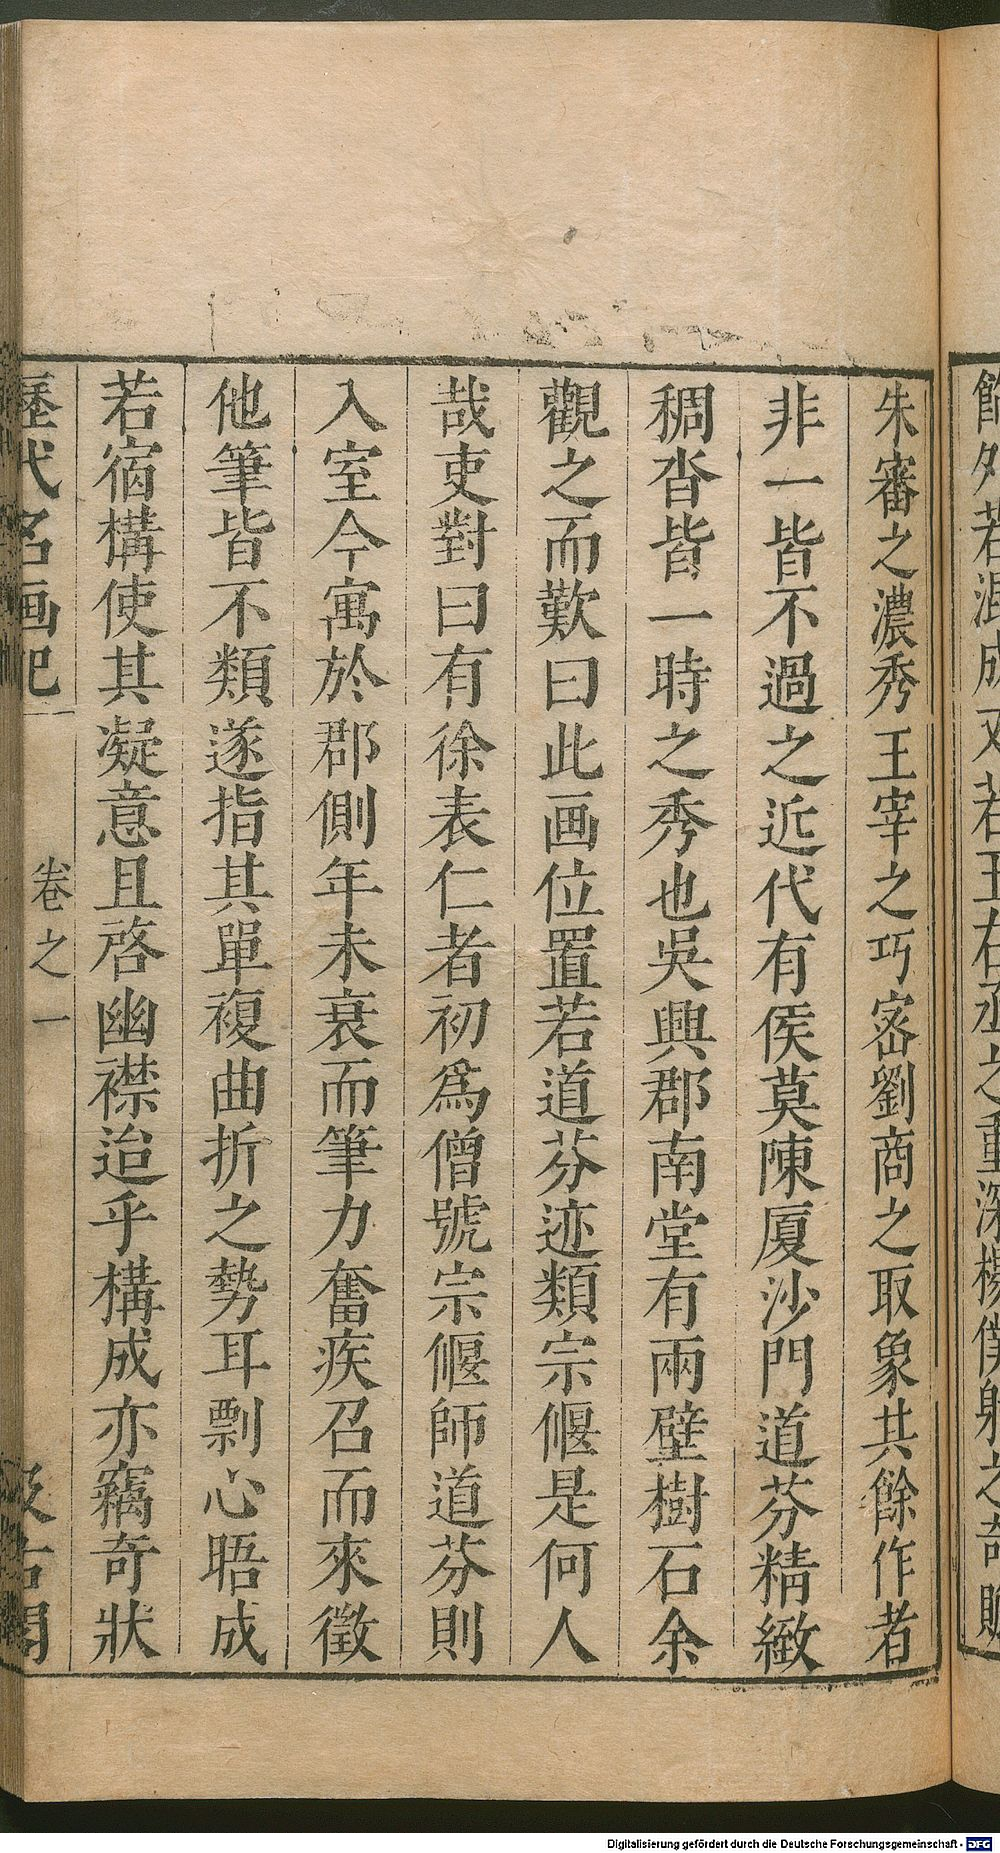 飾處若混成又若王右丞之重深楊僕射之奇贍
朱審之濃秀王宰之巧密劉商之取象其餘作者
非一皆不過之近代有侯莫陳厦沙門道芬精緻
稠沓皆一時之秀也吳興郡南堂有兩壁樹石余
觀之而歎曰此画位置若道芬迹類宗偃是何人
哉吏對曰有徐表仁者初爲僧號宗偃師道芬則
入室今寓於郡側年未衰而筆力奮疾召而來徵
他筆皆不類遂指其單複曲折之勢耳剽心晤成
若宿構使其凝意且啓幽襟迨乎構成亦竊奇狀
歷代名画記 卷之一 汲古閣
Digitalisierung gefördert durch die Deutsche Forschungsgemeinschaft - DFG